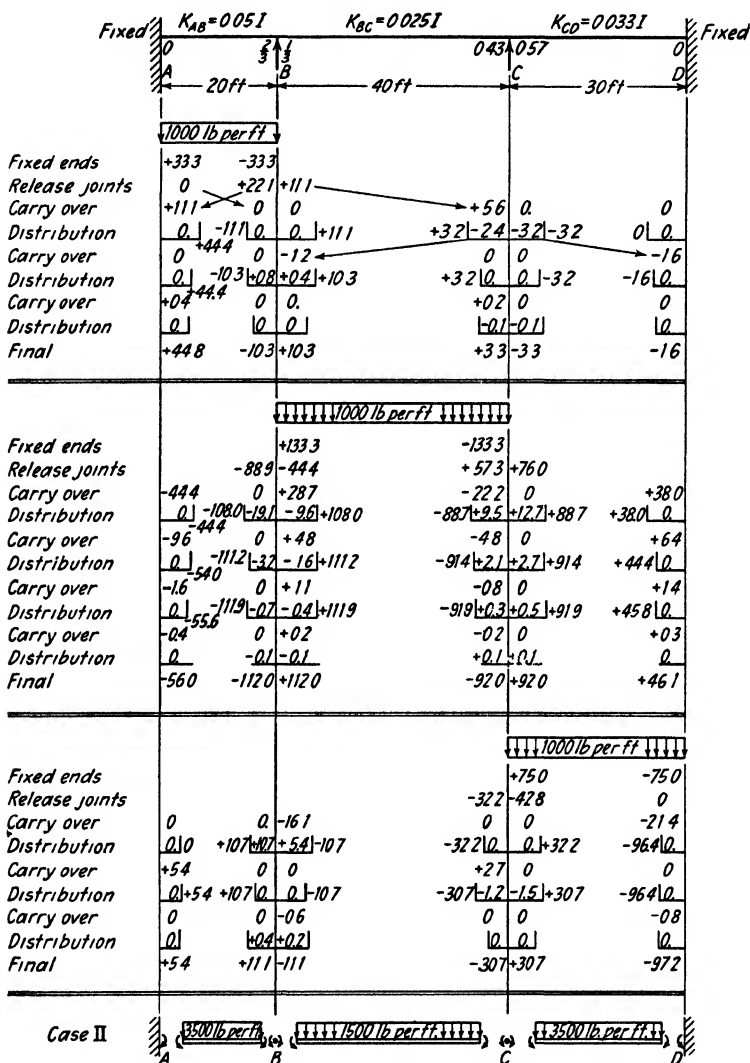 K_AB=0.05I K_BC=0.025I K_CD=0.033I
Fixed Fixed
0 2/3 1/3 0.43 0.57 0
A B C D
20ft 40ft 30ft
1000 lb per ft
Fixed ends +33.3 -33.3
Release joints 0 +22.1 +11.1
Carry over +11.1 0 0 +5.6 0. 0
Distribution 0. -11.1 0. 0. +11.1 +3.2 -2.4 -3.2 -3.2 0 0.
+44.4
Carry over 0 0 -1.2 0 0 -1.6
Distribution 0. -10.3 +0.8 +0.4 +10.3 +3.2 0. 0. -3.2 -1.6 0.
+44.4
Carry over +0.4 0 0. +0.2 0 0
Distribution 0. 0 0. -0.1 -0.1 0.
Final +44.8 -10.3 +10.3 +3.3 -3.3 -1.6
1000 lb per ft
Fixed ends +133.3 -133.3
Release joints -88.9 -44.4 +57.3 +76.0
Carry over -44.4 0 +28.7 -22.2 0 +38.0
Distribution 0. -108.0 -19.1 -9.6 +108.0 -88.7 +9.5 +12.7 +88.7 +38.0 0.
-44.4
Carry over -9.6 0 +4.8 -4.8 0 +6.4
Distribution 0. -111.2 -3.2 -1.6 +111.2 -91.4 +2.1 +2.7 +91.4 +44.4 0.
-54.0
Carry over -1.6 0 +1.1 -0.8 0 +1.4
Distribution 0. -111.9 -0.7 -0.4 +111.9 -91.9 +0.3 +0.5 +91.9 +45.8 0.
-55.6
Carry over -0.4 0 +0.2 -0.2 0 +0.3
Distribution 0. -0.1 -0.1 +0.1 +0.1 0.
Final -56.0 -112.0 +112.0 -92.0 +92.0 +46.1
1000 lb per ft
Fixed ends +75.0 -75.0
Release joints -32.2 -42.8 0
Carry over 0 0. -16.1 0 0 -21.4
Distribution 0. 0 +10.7 +10.7 +5.4 -10.7 -32.2 0. 0. +32.2 -96.4 0.
Carry over +5.4 0 0 +2.7 0 0
Distribution 0. +5.4 +10.7 0. 0. -10.7 -30.7 -1.2 -1.5 +30.7 -96.4 0.
Carry over 0 0 -0.6 0 0 -0.8
Distribution 0. +0.4 +0.2 0. 0. 0.
Final +5.4 +11.1 -11.1 -30.7 +30.7 -97.2
Case II 3500 lb per ft 1500 lb per ft. 3500 lb per ft.
A B C D